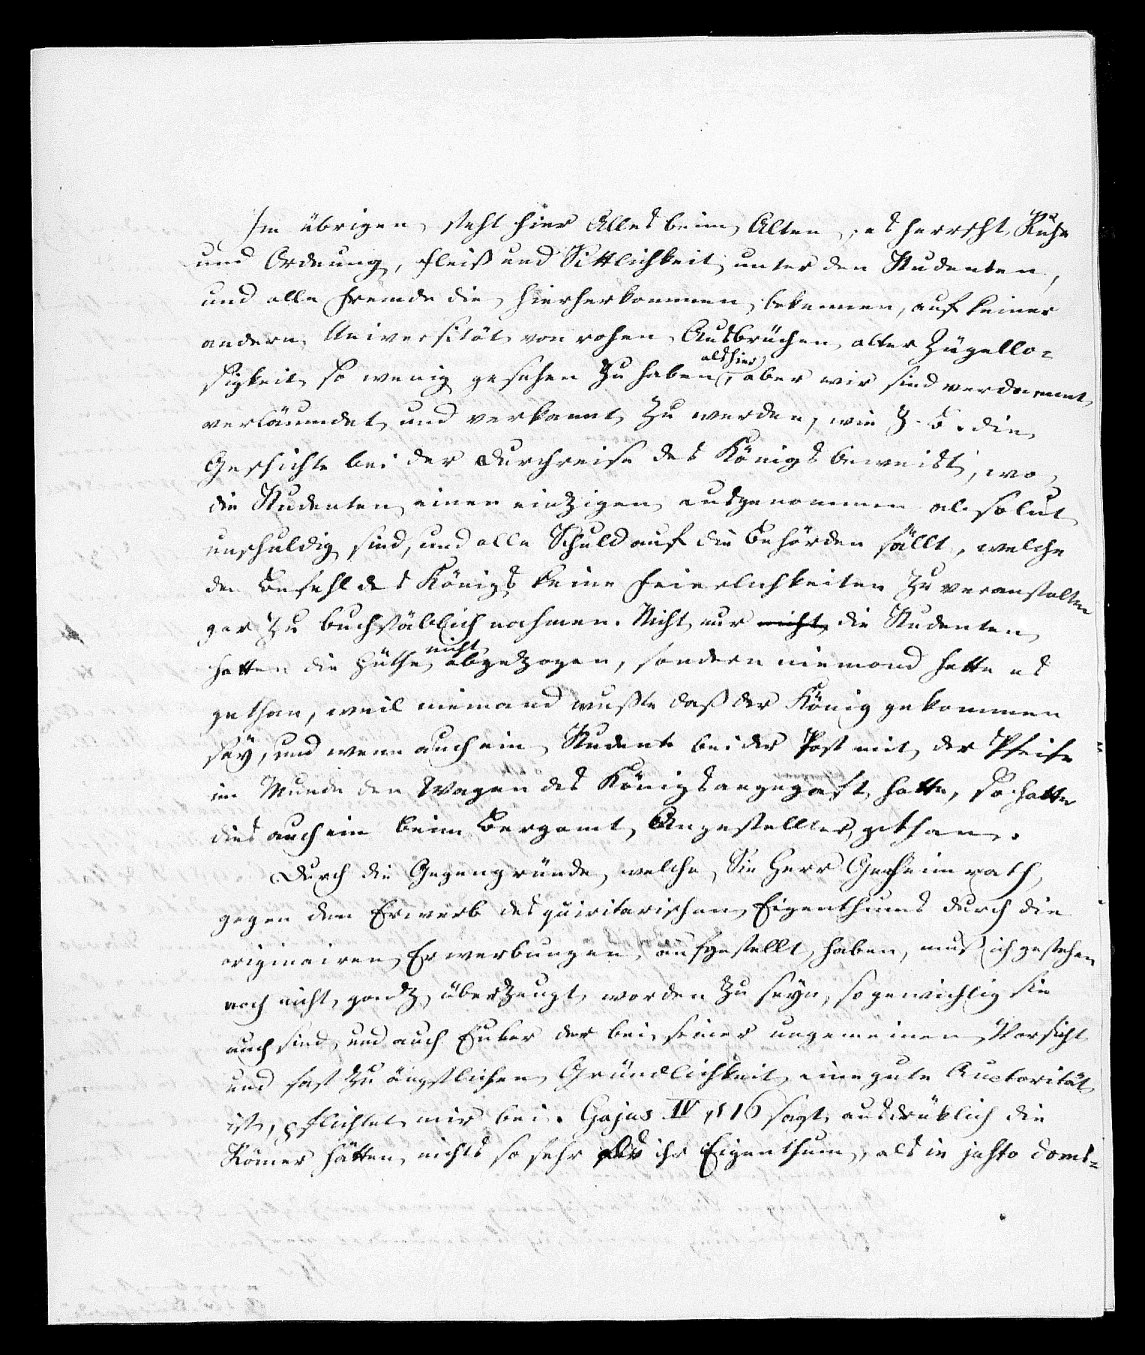 Im übrigen steht hier Alles beim Alten, es herrscht Ruhe
und Ordnung, Fleiß und Sittlichkeit unter den Studenten,
und alle Fremde die hierherkommen, bekennen, auf keiner
andern Universität von rohen Ausbrüchen alter Zügello-
sigkeit so wenig gesehen zu haben als hier, aber wir sind verdammt
verläumdet und verkannt zu werden, wie z. B. die
Geschichte bei der Durchreise des Königs beweist, wo
die Studenten einen einzigen ausgenommen absolut
unschuldig sind, und alle Schuld auf die Behörden fällt, welche
den Befehl des Königs keine Feierlichkeiten zu veranstalten
gar zu buchstäblich nahmen. Nicht nur nicht die Studenten
hatten die Hüthe nicht abgezogen, sondern niemand hatte es
gethan, weil niemand wußte daß der König gekommen
sey, und wenn auch ein Student bei der Post mit der Pfeife
im Munde den Wagen des Königs angegaft hatte, so hatte
dies auch ein beim Bergamt Angestellter gethan.
Durch die Gegengründe, welche Sie Herr Geheimrath,
gegen den Erwerb des quiritarischen Eigenthums durch die
originairen Erwerbungen, aufgestellt haben, muß ich gestehen
noch nicht ganz überzeugt worden zu seyn, so gewichtig sie
auch sind, und auch der bei seiner ungemeinen Vorsicht
und fast zu ängstlichen Gründlichkeit eine gute Auctorität
ist, pflichtet mir bei. Gajus IV § 16 sagt ausdrüklich die
Römer hätten nichts so sehr für ihr Eigenthum, als in justo domi-